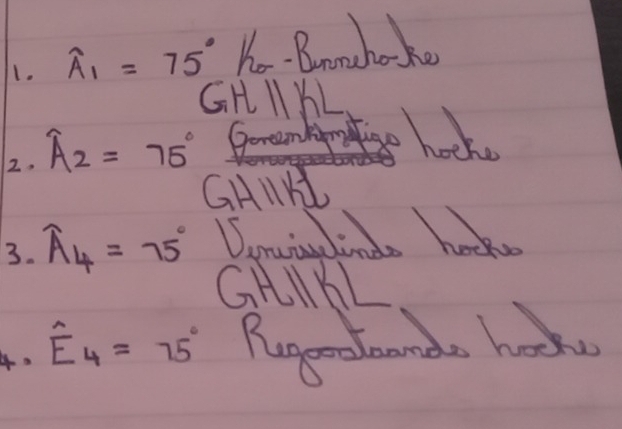 1. Â1 = 75° Ko-Binnehoeke
GH || KL
2. Â2 = 75° hoeke
GH || KL
3. Â4 = 75° Verwisselinde hoeke
GH || KL
4. Ê4 = 75° Regoorstaande hoeke